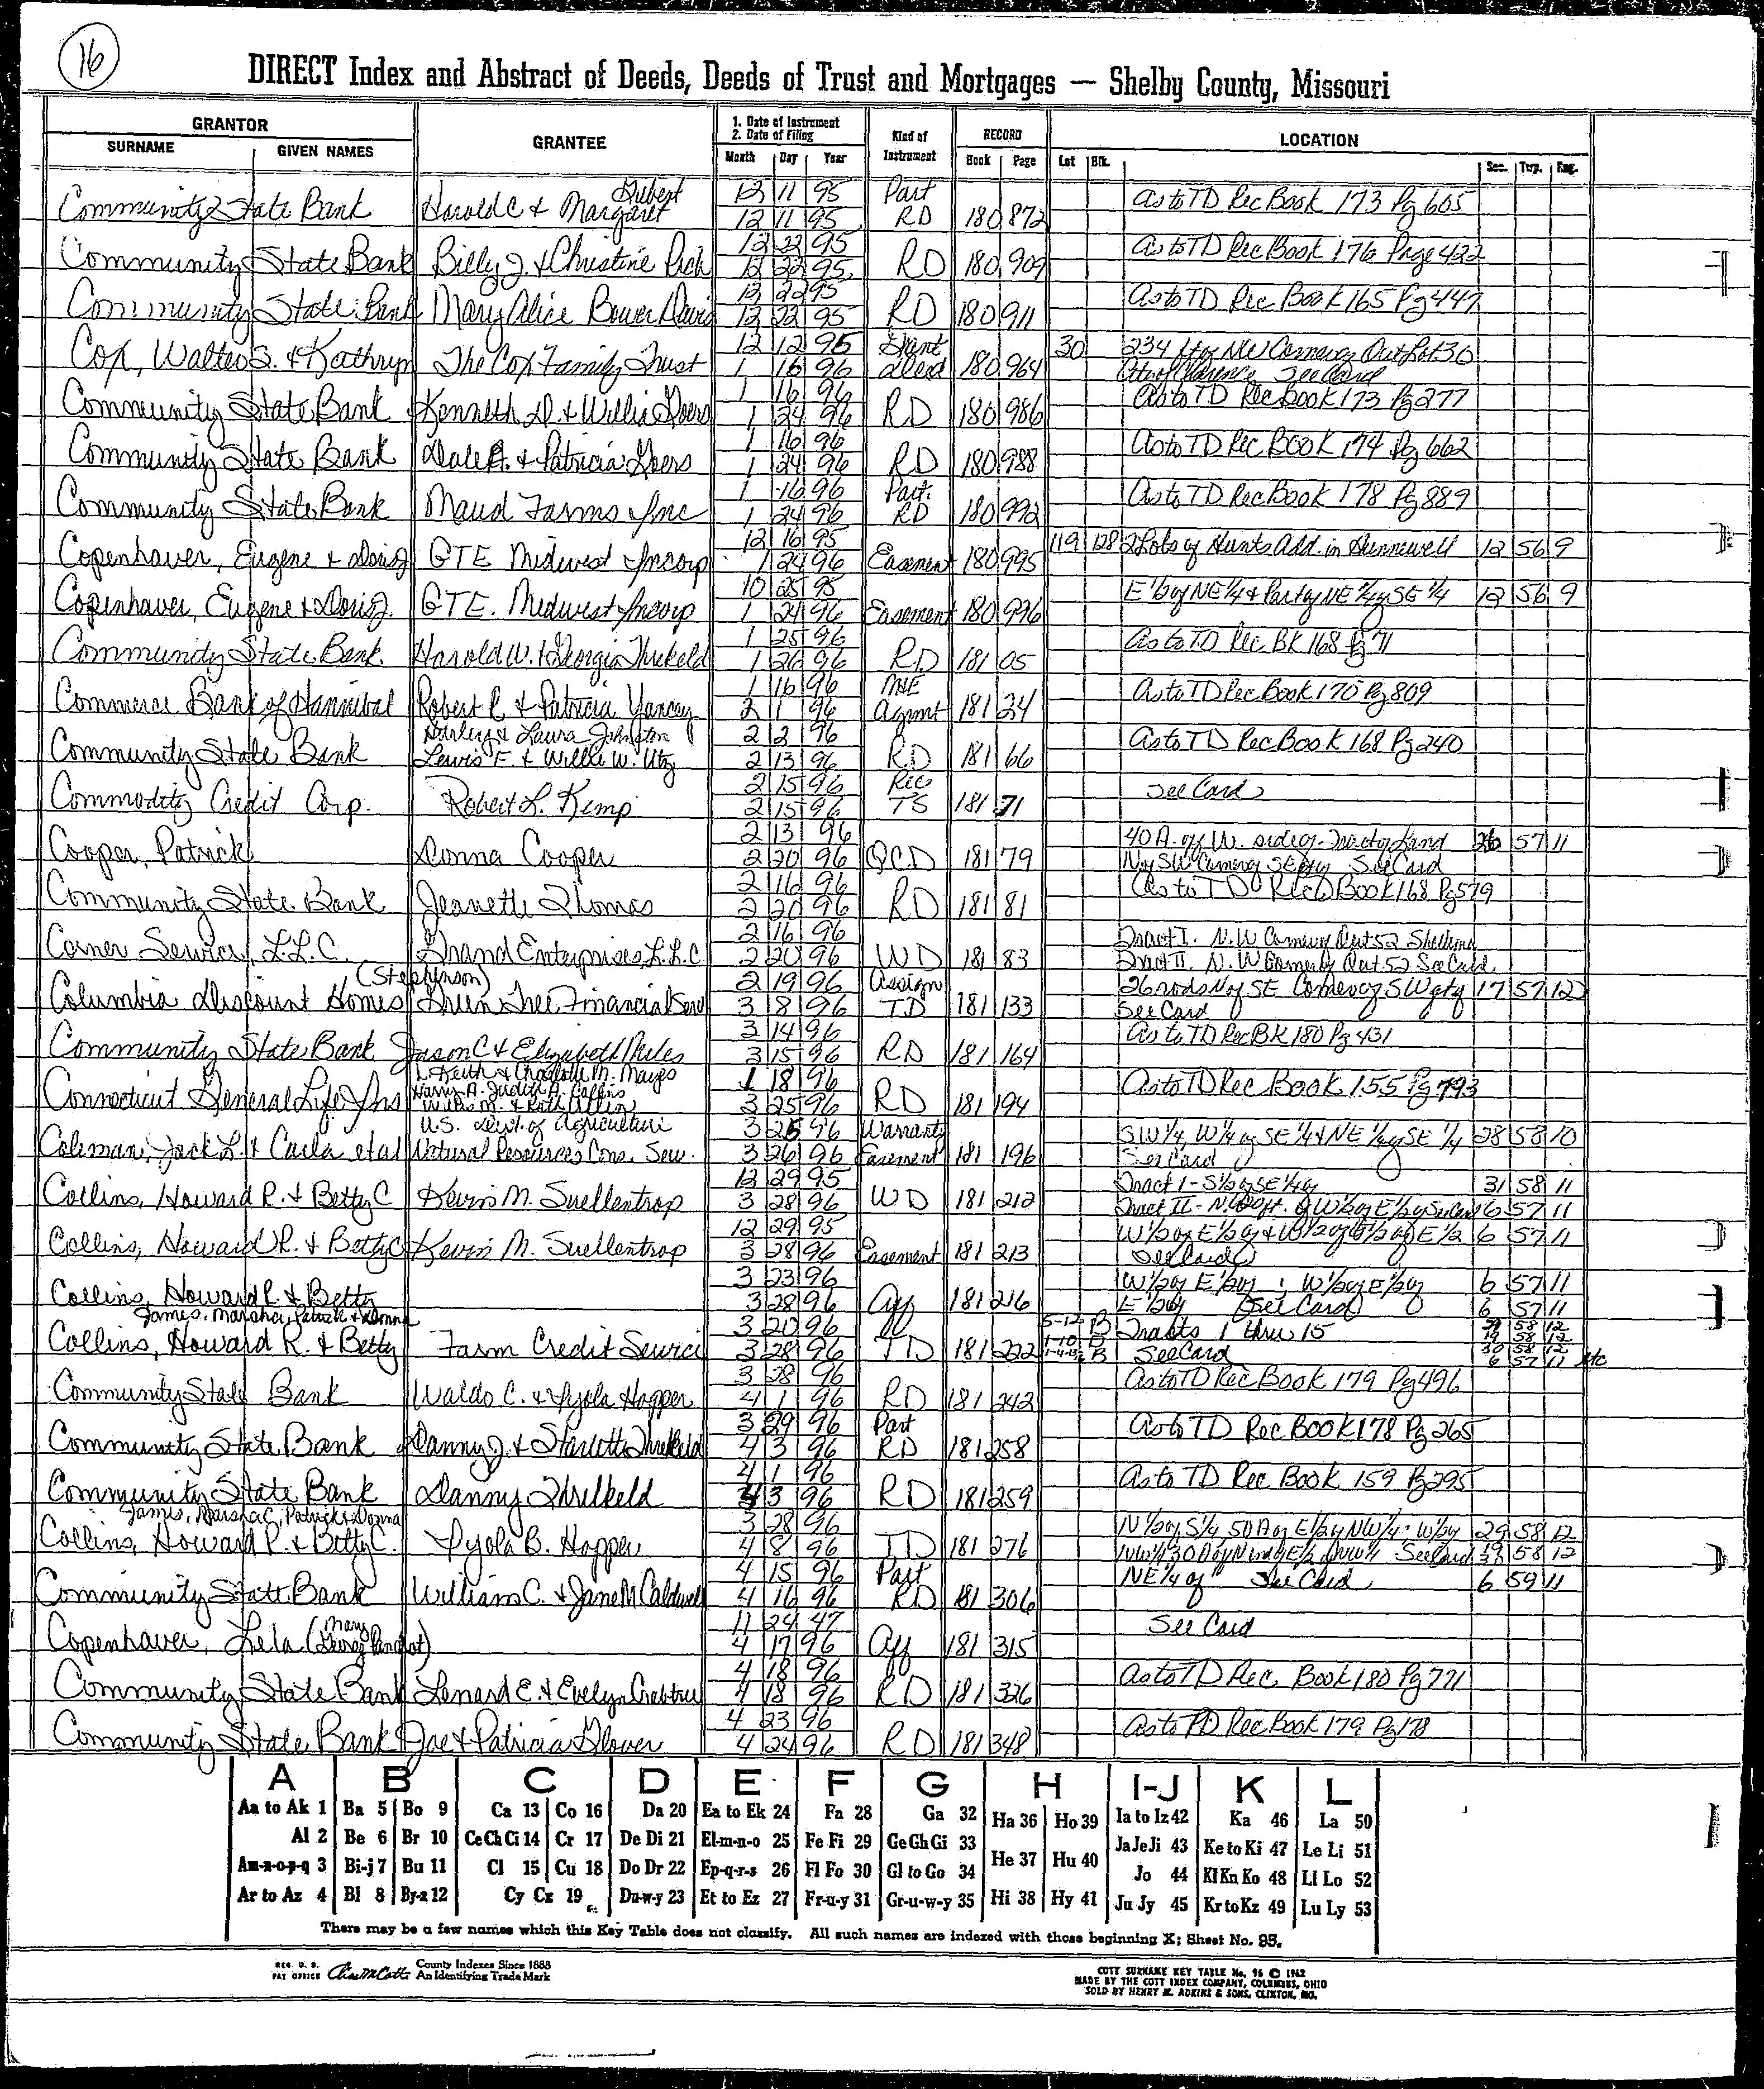 16
DIRECT Index and Abstract of Deeds, Deeds of Trust and Mortgages — Shelby County, Missouri
GRANTOR GRANTEE 1. Date of Instrument 2. Date of Filing Kind of Instrument RECORD LOCATION
SURNAME GIVEN NAMES Month Day Year Book Page Lot Blk. Sec. Twp. Rng.
Community State Bank Harold C & Margaret 12 11 95 12 11 95 Part RD 180 872 As to TD Rec Book 173 Pg 605
Community State Bank Billy J. & Christine Rich 12 22 95 12 22 95 RD 180 909 As to TD Rec Book 176 Page 422
Community State Bank Mary Alice Bower Davis 12 22 95 12 22 95 RD 180 911 As to TD Rec Book 165 Pg 447
Cox, Walter S. & Kathryn The Cox Family Trust 12 12 95 1 16 96 Grant Deed 180 964 30 234 ft of NW Corner of Out Lot 30
City of Clarence See Card
Community State Bank Kenneth D. & Willia Goers 1 16 96 1 24 96 RD 180 986 As to TD Rec Book 173 Pg 277
Community State Bank Dale A. & Patricia Goers 1 16 96 1 24 96 RD 180 988 As to TD Rec Book 174 Pg 662
Community State Bank Maud Farms Inc 1 16 96 1 24 96 Part. RD 180 992 As to TD Rec Book 178 Pg 889
Copenhaver, Eugene & Doris J. GTE Midwest Incorp 12 16 95 1 24 96 Easement 180 995 119 128 2 Lots of Hunts Add. in Hunnewell 12 56 9
Copenhaver, Eugene & Doris J. GTE. Midwest Incorp 10 25 95 1 24 96 Easement 180 996 E 1/2 of NE 1/4 & Part of NE 1/4 of SE 1/4 12 56 9
Community State Bank Harold W. & Georgia Threkeld 1 25 96 1 26 96 RD 181 05 As to TD Rec BK 168 Pg 71
Commerce Bank of Hannibal Robert R. & Patricia Yancey 1 16 96 2 1 96 Agrmt 181 24 As to TD Rec Book 170 Pg 809
Harley & Laura Johnston
Community State Bank Lewis E. & Willie W. Utz 2 2 96 2 13 96 RD 181 66 As to TD Rec Book 168 Pg 240
Commodity Credit Corp. Robert L. Kemp 2 15 96 2 15 96 Rec TS 181 71 See Card
Cooper, Patrick Donna Cooper 2 13 96 2 20 96 QCD 181 79 40 A. off W. side of Tract of Land 26 57 11
N of SW Corner of SE See Card
Community State Bank Jeanette Thomas 2 16 96 2 20 96 RD 181 81 As to TD Rec Book 168 Pg 579
Corner Service, L.L.C. Grand Enterprises, L.L.C. 2 16 96 2 20 96 WD 181 83 Tract I. N.W Corner of Out 52
Tract II. N.W Corner of Out 52 See Card
(Stephenson)
Columbia Discount Homes Green Tree Financial Serv 2 19 96 3 8 96 Assign TD 181 133 26 rods N of SE Corner of SW qty 17 57 12
See Card
Community State Bank Jason C & Elizabeth Miles 3 14 96 3 15 96 RD 181 164 As to TD Rec BK 180 Pg 431
L. Keith & Charlotte M. Mayes
Harry A. Judith A. Collins
Connecticut General Life Ins Willis M. & Ruth Allin 1 18 96 3 25 96 RD 181 194 As to TD Rec Book 155 Pg 793
U.S. Dept. of Agriculture
Coleman, Jack L. & Carla et al Natural Resources Cons. Serv. 3 25 96 3 26 96 Warranty Easement 181 196 SW 1/4, W 1/4 of SE 1/4 & NE 1/4 of SE 1/4 28 58 10
See Card
Collins, Howard R. & Betty C Kevin M. Suellentrop 12 29 95 3 28 96 WD 181 212 Tract I - S 1/2 of SE 1/4 of 31 58 11
Tract II - of W 1/2 of E 1/2 of See Card 6 57 11
Collins, Howard R. & Betty C Kevin M. Suellentrop 12 29 95 3 28 96 Easement 181 213 W 1/2 of E 1/2 of & W 1/2 of E 1/2 of E 1/2 6 57 11
See Card
Collins, Howard R. & Betty 3 23 96 3 28 96 Aff 181 216 W 1/2 of E 1/2 of ; W 1/2 of E 1/2 of 6 57 11
E 1/2 of (See Card) 6 57 11
James, Marsha, Patrick & Donna
Collins, Howard R. & Betty Farm Credit Service 3 20 96 3 28 96 TD 181 222 5-12 B Tracts 1 thru 15
1-10 B See Card 30 58 12
6 57 11 etc
Community State Bank Waldo C. & Lyola Hopper 3 28 96 4 1 96 RD 181 242 As to TD Rec Book 179 Pg 496
Community State Bank Danny J. & Starlett Threlkeld 3 29 96 4 3 96 Part RD 181 258 As to TD Rec Book 178 Pg 265
Community State Bank Danny Threlkeld 4 1 96 4 3 96 RD 181 259 As to TD Rec Book 159 Pg 295
James, Marsha C, Patrick & Donna
Collins, Howard R. & Betty C. Lyola B. Hopper 3 28 96 4 8 96 TD 181 276 N 1/2 of S 1/4, 50 A of E 1/2 of NW 1/4 W 1/2 of 29 58 12
See Card 58 12
Community State Bank William C. & Jane M Caldwell 4 15 96 4 16 96 Part RD 181 306 NE 1/4 of See Card 6 59 11
Copenhaver, Lela (Mary 11 24 47 4 17 96 Aff 181 315 See Card
Community State Bank Lenard E. & Evelyn Crabtree 4 18 96 4 18 96 RD 181 326 As to TD Rec. Book 180 Pg 771
Community State Bank Joe & Patricia Glover 4 23 96 4 24 96 RD 181 348 As to TD Rec Book 179 Pg 178
A B C D E F G H I-J K L
Aa to Ak 1 Ba 5 Bo 9 Ca 13 Co 16 Da 20 Ea to Ek 24 Fa 28 Ga 32 Ha 36 Ho 39 Ia to Iz 42 Ka 46 La 50
Al 2 Be 6 Br 10 Ce Ch Ci 14 Cr 17 De Di 21 El-m-n-o 25 Fe Fi 29 Ge Gh Gi 33 He 37 Hu 40 Ja Je Ji 43 Ke to Ki 47 Le Li 51
Am-n-o-p-q 3 Bi-j 7 Bu 11 Cl 15 Cu 18 Do Dr 22 Ep-q-r-s 26 Fl Fo 30 Gl to Go 34 Jo 44 Kl Kn Ko 48 Ll Lo 52
Ar to Az 4 Bl 8 By-z 12 Cy Cz 19 Du-w-y 23 Et to Ez 27 Fr-u-y 31 Gr-u-w-y 35 Hi 38 Hy 41 Ju Jy 45 Kr to Kz 49 Lu Ly 53
There may be a few names which this Key Table does not classify. All such names are indexed with those beginning X; Sheet No. 95.
REG. U. S. PAT OFFICE County Indexes Since 1888
An Identifying Trade Mark
COTT SURNAME KEY TABLE No. 96 © 1962
MADE BY THE COTT INDEX COMPANY, COLUMBUS, OHIO
SOLD BY HENRY M. ADKINS & SONS, CLINTON, MO.